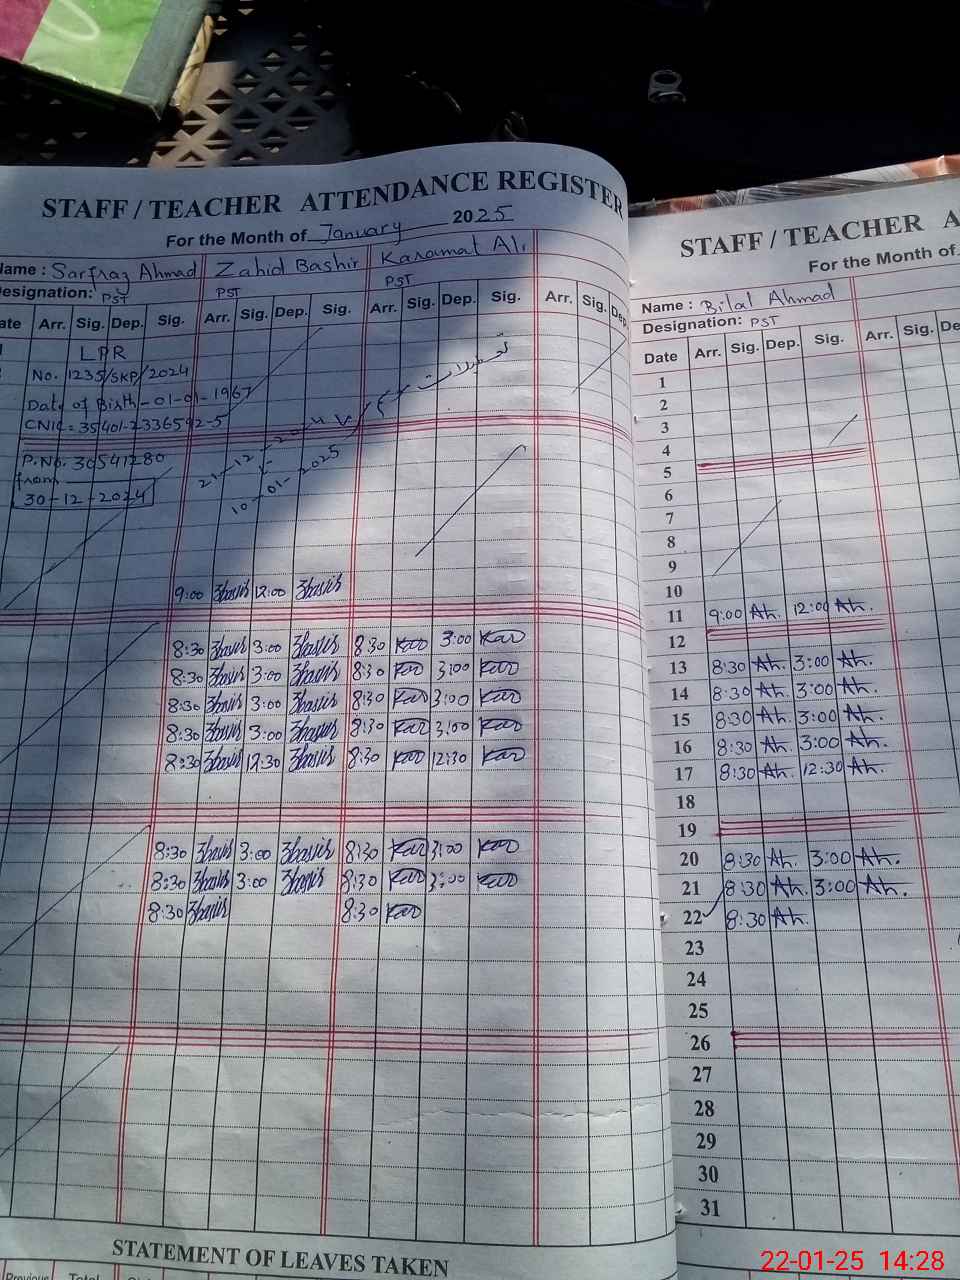 STAFF / TEACHER ATTENDANCE REGISTER
For the Month of January 2025
Name : Sarfraz Ahmad Zahid Bashir Karamat Ali
Designation: PST PST PST
Date Arr. Sig. Dep. Sig. Arr. Sig. Dep. Sig. Arr. Sig. Dep. Sig. Arr. Sig. Dep.
LPR
No. 1235/SKP/2024
Date of Birth - 01-01-1967
CNIC = 35401-2336592-5
P.No. 30541280
from
30-12-2024
تعطیلات
21-12-2024
10-01-2025
9:00 Zbasir 12:00 Zbasir
8:30 Zbasir 3:00 Zbasir 8:30 Kar 3:00 Kar
8:30 Zbasir 3:00 Zbasir 8:30 Kar 3:00 Kar
8:30 Zbasir 3:00 Zbasir 8:30 Kar 3:00 Kar
8:30 Zbasir 3:00 Zbasir 8:30 Kar 3:00 Kar
8:30 Zbasir 12:30 Zbasir 8:30 Kar 12:30 Kar
8:30 Zbasir 3:00 Zbasir 8:30 Kar 3:00 Kar
8:30 Zbasir 3:00 Zbasir 8:30 Kar 3:00 Kar
8:30 Zbasir 8:30 Kar
STATEMENT OF LEAVES TAKEN
Previous Total
STAFF / TEACHER A
For the Month of
Name : Bilal Ahmad
Designation: PST
Date Arr. Sig. Dep. Sig. Arr. Sig. De
1
2
3
4
5
6
7
8
9
10
11 9:00 Ah. 12:00 Ah.
12
13 8:30 Ah. 3:00 Ah.
14 8:30 Ah. 3:00 Ah.
15 8:30 Ah. 3:00 Ah.
16 8:30 Ah. 3:00 Ah.
17 8:30 Ah. 12:30 Ah.
18
19
20 8:30 Ah. 3:00 Ah.
21 8:30 Ah. 3:00 Ah.
22 8:30 Ah.
23
24
25
26
27
28
29
30
31
22-01-25 14:28